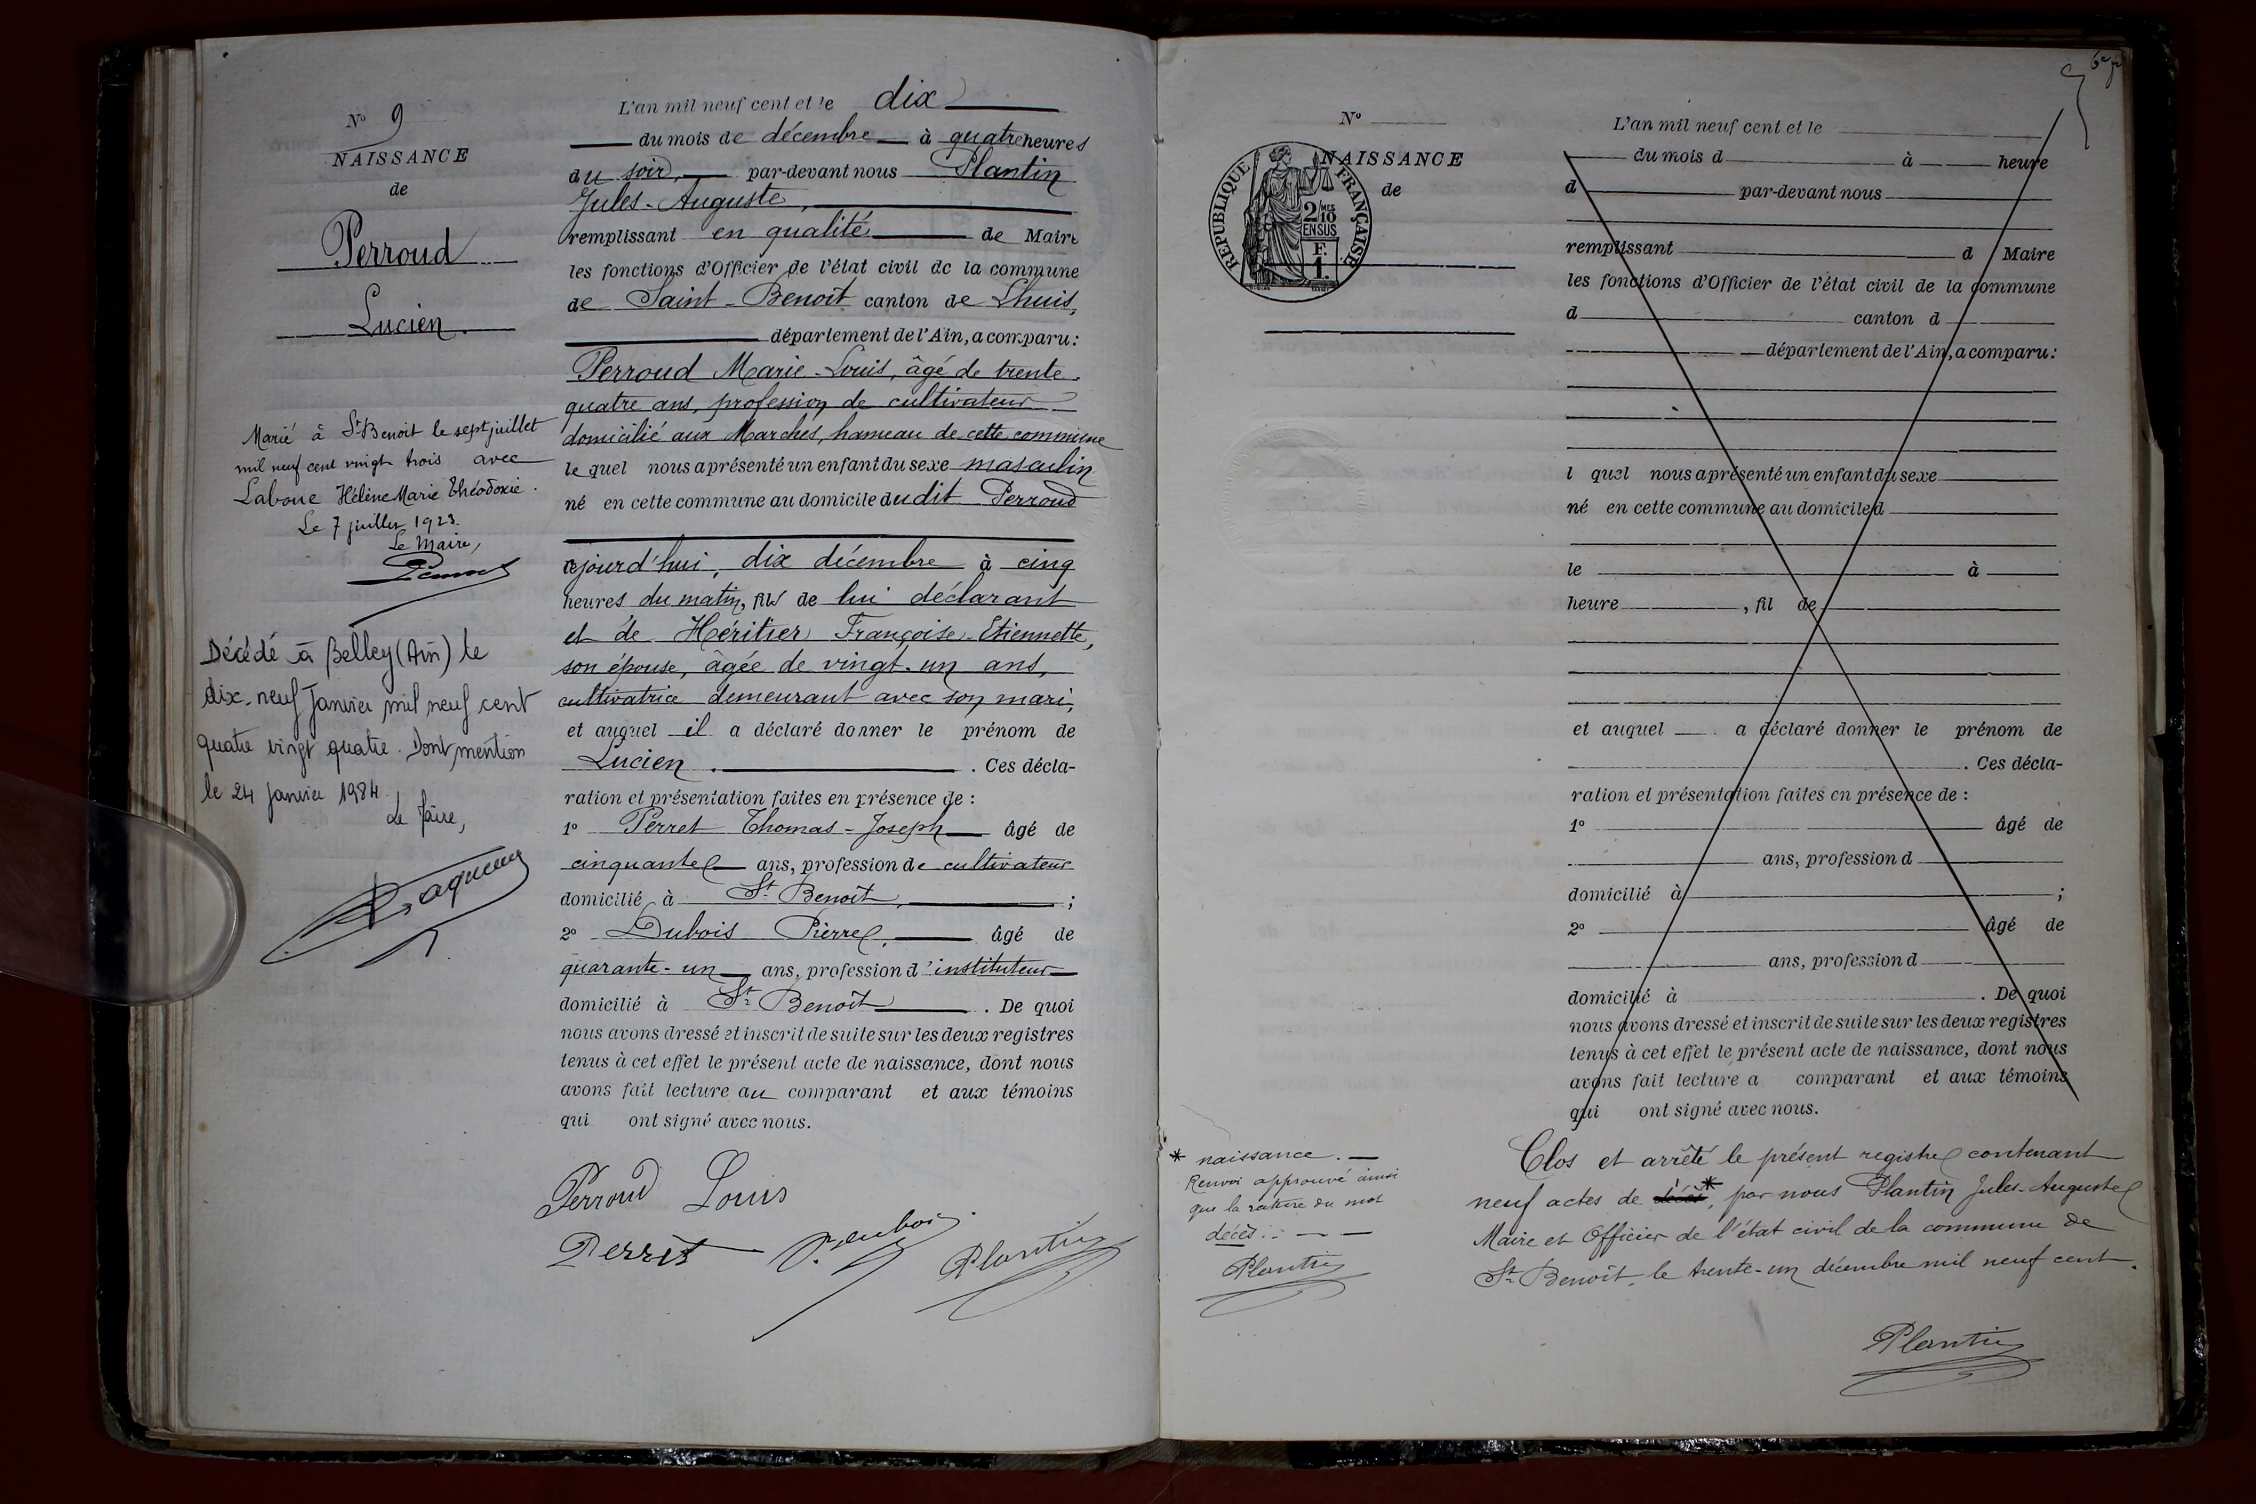 N° 9
NAISSANCE
de
Perroud
Lucien.
Marié à St Benoit le sept juillet
mil neuf cent vingt trois avec
Laboue Hélène Marie Théodoxie.
Le 7 juillet 1923.
Le Maire,
Décédé à Belley (Ain) le
dix-neuf Janvier mil neuf cent
quatre vingt quatre. Dont mention
le 24 Janvier 1984.
Le Maire,
L'an mil neuf cent et le dix
du mois de décembre à quatre heures
du soir, par-devant nous Plantin
Jules-Auguste,
remplissant en qualité de Maire
les fonctions d'Officier de l'état civil de la commune
de Saint-Benoît canton de Lhuis,
département de l'Ain, a comparu:
Perroud Marie-Louis, âgé de trente-
quatre ans, profession de cultivateur
domicilié aux Marches, hameau de cette commune
le quel nous a présenté un enfant du sexe masculin
né en cette commune au domicile dudit Perroud
ajourd'hui, dix décembre à cinq
heures du matin, fils de lui déclarant
et de Héritier Françoise-Etiennette,
son épouse, âgée de vingt-un ans,
cultivatrice demeurant avec son mari,
et auquel il a déclaré donner le prénom de
Lucien. . Ces décla-
ration et présentation faites en présence de :
1° Perret Thomas-Joseph âgé de
cinquante ans, profession de cultivateur
domicilié à St Benoît, ;
2° Dubois Pierre, âgé de
quarante-un ans, profession d'instituteur
domicilié à St Benoît . De quoi
nous avons dressé et inscrit de suite sur les deux registres
tenus à cet effet le présent acte de naissance, dont nous
avons fait lecture au comparant et aux témoins
qui ont signé avec nous.
Perroud Louis
Perret P. Dubois Plantin
N°
NAISSANCE
de
REPUBLIQUE FRANÇAISE
2/10 MES
EN SUS
F.
1.
L'an mil neuf cent et le
du mois d à heure
d par-devant nous
remplissant d Maire
les fonctions d'Officier de l'état civil de la commune
d canton d
département de l'Ain, a comparu:
l quel nous a présenté un enfant du sexe
né en cette commune au domicile d
le à
heure , fil de
et auquel a déclaré donner le prénom de
. Ces décla-
ration et présentation faites en présence de :
1° âgé de
ans, profession d
domicilié à ;
2° âgé de
ans, profession d
domicilié à . De quoi
nous avons dressé et inscrit de suite sur les deux registres
tenus à cet effet le présent acte de naissance, dont nous
avons fait lecture a comparant et aux témoins
qui ont signé avec nous.
* naissance.
Renvoi approuvé ainsi
que la rature du mot
décès.
Plantin
Clos et arrêté le présent registre contenant
neuf actes de décès*, par nous Plantin Jules-Auguste
Maire et Officier de l'état civil de la commune de
St Benoît, le trente-un décembre mil neuf cent.
Plantin